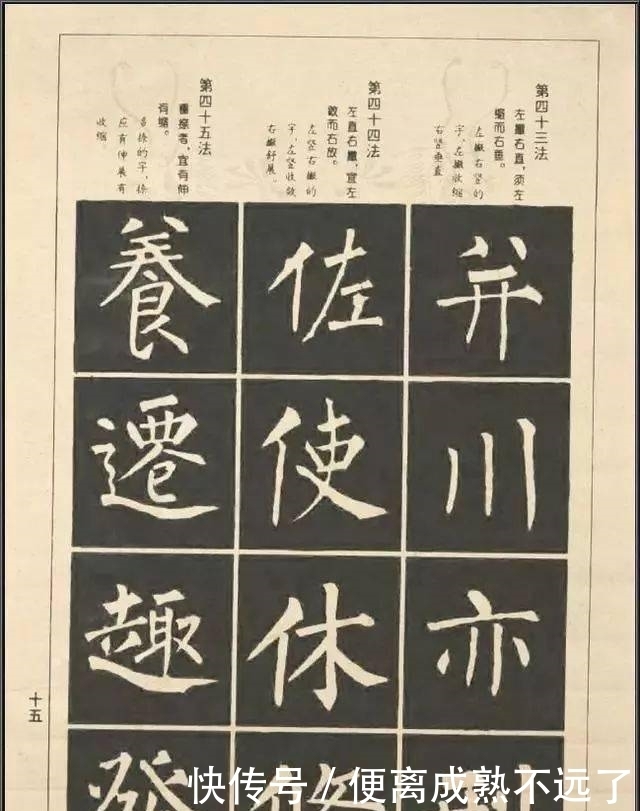 第四十三法
左撇右直，须左
缩而右垂。
左撇右竖的
字，左撇收缩
右竖垂直
并
川
亦
第四十四法
左直右撇，宜左
敛而右放。
左竖右撇的
字，左竖收敛
右撇舒展。
佐
使
休
第四十五法
重捺者，宜有伸
有缩。
多捺的字，捺
应有伸展有
收缩
養
遷
趣
發
十五
快传号 / 便离成熟不远了